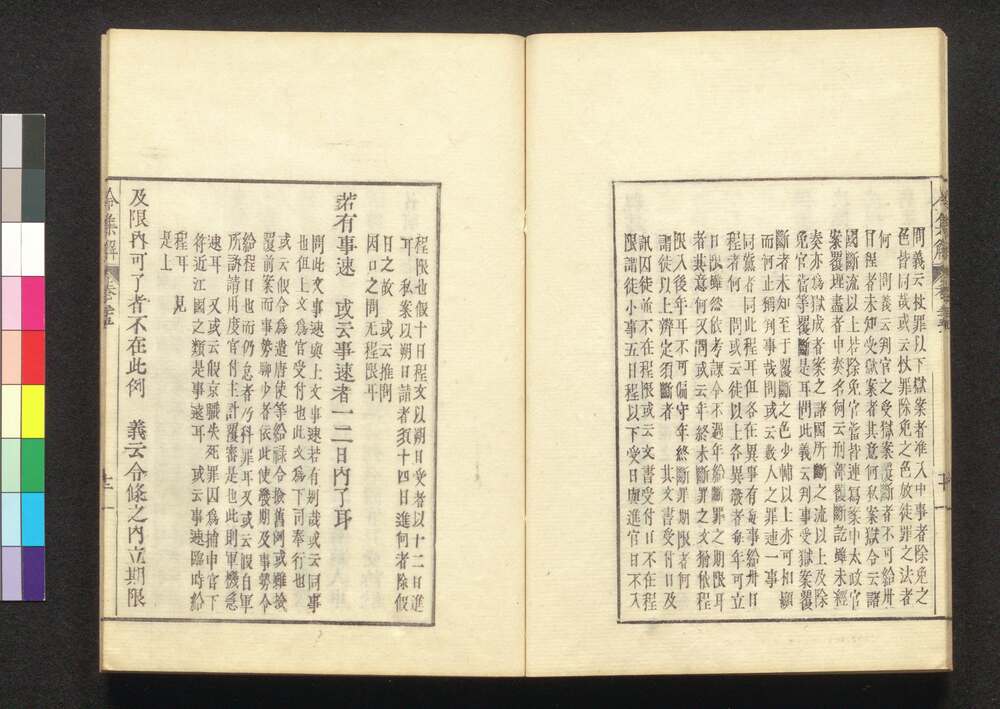 問義云杖罪以下獄案者准入中事者除免之
色皆同哉或云杖罪除免之色放徒罪之法者
何 問義云判官之受獄案覆斷者不可給卅
日程者未知受獄案者其意何私案獄令云諸
國斷流以上若除免官當皆連寫案申太政官
案覆理盡者申奏名例云刑部覆斷訖雖未經
奏亦為獄成者案之諸國所斷之流以上及除
免官當等覆斷是耳問此義云判事受獄案覆
斷者未知至于覆斷之色少輔以上亦可相
而何止判事哉問或云數人之罪連一事
同者同此程耳但各在異事有每事給卅日
程者何 問或云徒以上各異者每年可立
日限雖然依考課令不過年給斷罪之期限耳
者其意何又問或云年終未斷罪之文猶依程
限入後年耳不可偏守年終斷罪期限者何
諸徒以上辨定須斷者 其文書受付日及
訊囚徒並不在程限或云文書受付日不在程
限諸徒小事五日程以下受日進官日不入
令集解 卷 十一
程限也假十日程文以朔日受者以十二日進
耳 私案以朔日請者須十四日進何者除假
日之故 或云推問
囚日之問无程限耳
若有事速 或云事速者一二日内了耳
問此文事速與上文事速若有別哉或云同事
也但上文為官受付也此文為下司奉行也
或云假令為遣唐使等給祿令撿舊例或雖撿
覆前案而事勢聊少者依此使發期及事勢令
給程日也而仍怠者乃科罪耳又或云假自軍
所請請用度官付主計覆審是也此則軍機急
速耳 又或云假京職失死罪囚為捕申官下
符近江國之類是事速耳 或云事速臨時給
程耳 見
是上
及限内可了者不在此例 義云令條之内立期限
令集解 卷 十二